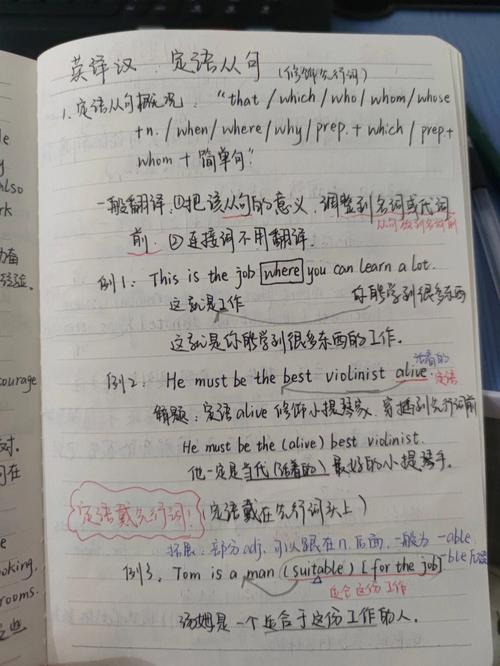 英译汉：定语从句（修饰先行词）
1. 定语从句概况："that / which / who / whom / whose
+n. / when / where / why / prep. + which / prep. +
whom + 简单句"
一般翻译：①把该从句的意义，调整到名词或代词
从句放到名词前
前. ②连接词不用翻译.
例1：This is the job where you can learn a lot.
这就是工作 你能学到很多东西
这就是你能学到很多东西的工作.
活着的
例2：He must be the best violinist alive. 定语
解题：定语alive修饰小提琴家，穿越到先行词前
He must be the (alive) best violinist.
他一定是当代(活着的)最好的小提琴手.
定语戴先行词！（定语戴在先行词头上）
拓展：部分adj. 可以跟在n. 后面，一般为-able.
-ble后缀
例3. Tom is a man (suitable) [for the job].
适合这份工作
汤姆是一个适合于这份工作的人.
le
also
rk
经验.
courage
对.
oking.
rooms.